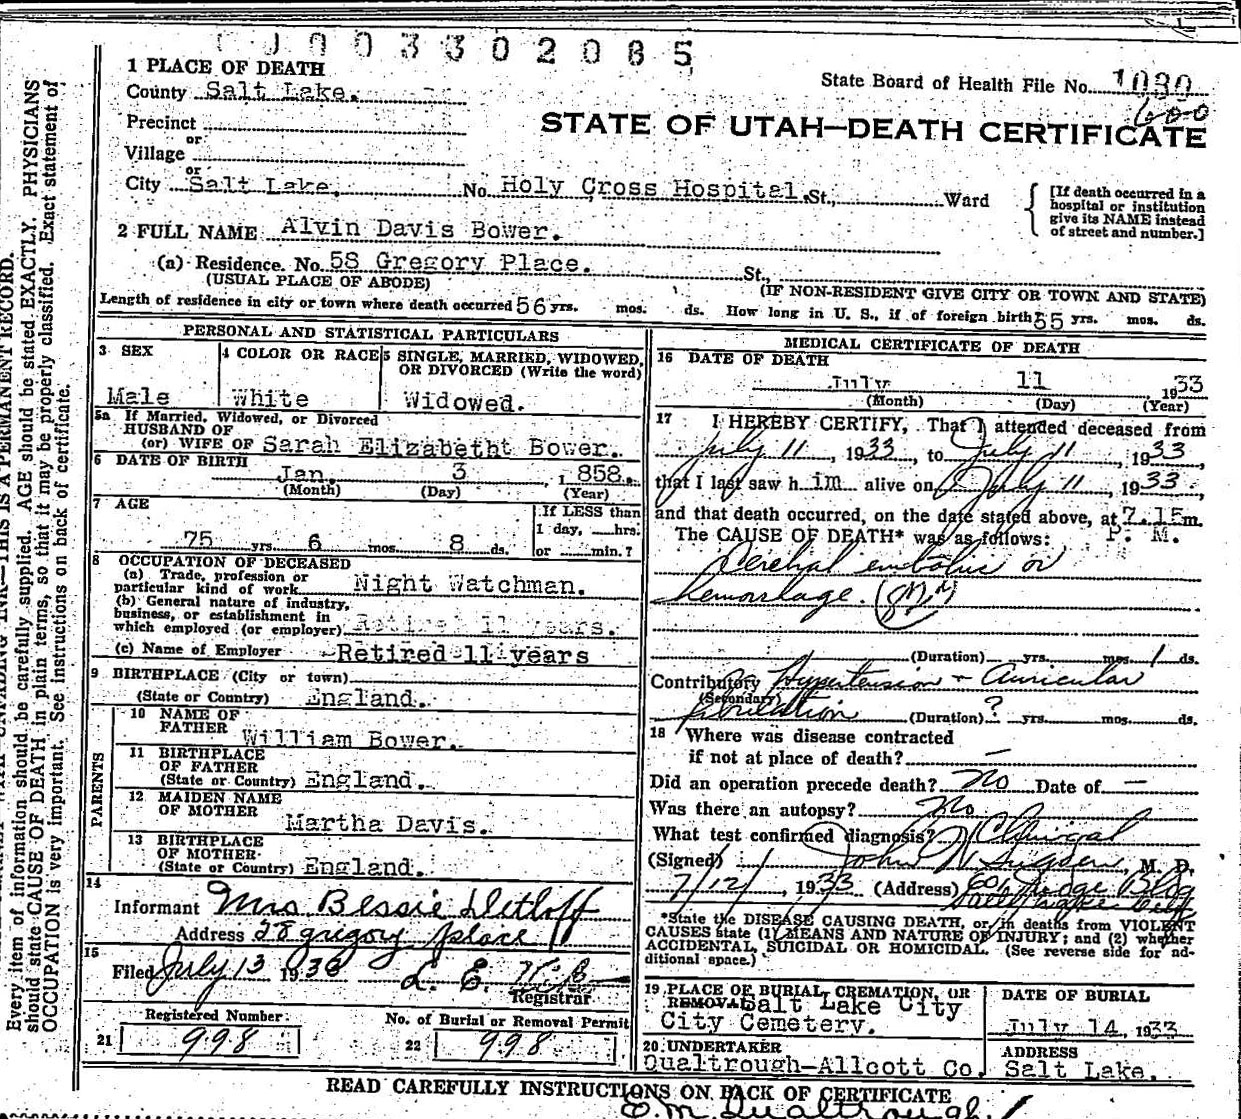 003302085
1 PLACE OF DEATH
State Board of Health File No. 1030
County Salt Lake.
600
STATE OF UTAH—DEATH CERTIFICATE
Precinct
or
Village
or
City Salt Lake, No. Holy Cross Hospital. St., Ward
[If death occurred in a hospital or institution give its NAME instead of street and number.]
2 FULL NAME Alvin Davis Bower.
(a) Residence. No. 58 Gregory Place. St.,
(USUAL PLACE OF ABODE) (IF NON-RESIDENT GIVE CITY OR TOWN AND STATE)
Length of residence in city or town where death occurred 56 yrs. mos. ds. How long in U. S., if of foreign birth 55 yrs. mos. ds.
PERSONAL AND STATISTICAL PARTICULARS
3 SEX 4 COLOR OR RACE 5 SINGLE, MARRIED, WIDOWED,
OR DIVORCED (Write the word)
Male White Widowed.
5a If Married, Widowed, or Divorced
HUSBAND OF
(or) WIFE OF Sarah Elizabetht Bower.
6 DATE OF BIRTH
Jan. 3 , 1 858.
(Month) (Day) (Year)
7 AGE If LESS than
1 day, hrs.
75 yrs. 6 mos. 8 ds. or min.?
8 OCCUPATION OF DECEASED
(a) Trade, profession or
particular kind of work Night Watchman.
(b) General nature of industry,
business, or establishment in
which employed (or employer) Retired 11 years.
(c) Name of Employer Retired 11 years
9 BIRTHPLACE (City or town)
(State or Country) England.
PARENTS
10 NAME OF
FATHER William Bower.
11 BIRTHPLACE
OF FATHER
(State or Country) England.
12 MAIDEN NAME
OF MOTHER
Martha Davis.
13 BIRTHPLACE
OF MOTHER
(State or Country) England.
14
Informant Mrs Bessie Ditloff
Address 28 gregory place
15
Filed July 13 1933 L. E.
Registrar
Registered Number. No. of Burial or Removal Permit
21 998 22 998
MEDICAL CERTIFICATE OF DEATH
16 DATE OF DEATH
July 11 1933
(Month) (Day) (Year)
17 I HEREBY CERTIFY, That I attended deceased from
July 11, 1933, to July 11, 1933,
that I last saw h im alive on July 11, 1933.
and that death occurred, on the date stated above, at 7.15 m.
The CAUSE OF DEATH* was as follows: P. M.
Cerebral embolus or
hemorrhage.
(Duration) yrs. mos. 1 ds.
Contributory Hypertension + Auricular
(Secondary)
fibrillation (Duration) ? yrs. mos. ds.
18 Where was disease contracted
if not at place of death? —
Did an operation precede death? No Date of —
Was there an autopsy? No
What test confirmed diagnosis? Clinical
(Signed) John W Sugden, M. D.
7/12/, 1933 (Address) Judge Bldg
Salt Lake City
*State the DISEASE CAUSING DEATH, or, in deaths from VIOLENT
CAUSES state (1) MEANS AND NATURE OF INJURY; and (2) whether
ACCIDENTAL, SUICIDAL OR HOMICIDAL. (See reverse side for ad-
ditional space.)
19 PLACE OF BURIAL, CREMATION, OR
REMOVAL Salt Lake City
City Cemetery.
DATE OF BURIAL
July 14, 1933
20 UNDERTAKER
Qualtrough-Allcott Co.
ADDRESS
Salt Lake.
READ CAREFULLY INSTRUCTIONS ON BACK OF CERTIFICATE
E. M. Qualtrough.
Every item of information should be carefully supplied. AGE should be stated EXACTLY. PHYSICIANS
should state CAUSE OF DEATH in plain terms, so that it may be properly classified. Exact statement of
OCCUPATION is very important. See instructions on back of certificate.
INK—THIS IS A PERMANENT RECORD.